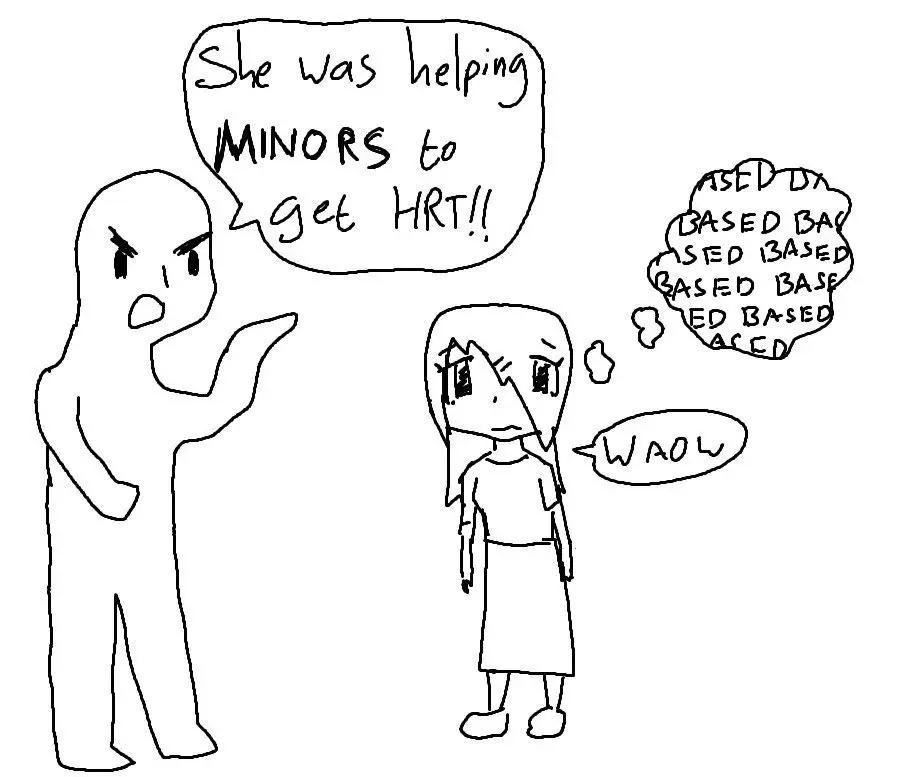 She was helping
MINORS to
get HRT!!
ASED BA
BASED BAS
ASED BASED
BASED BASE
ED BASED
ASED
WAOW